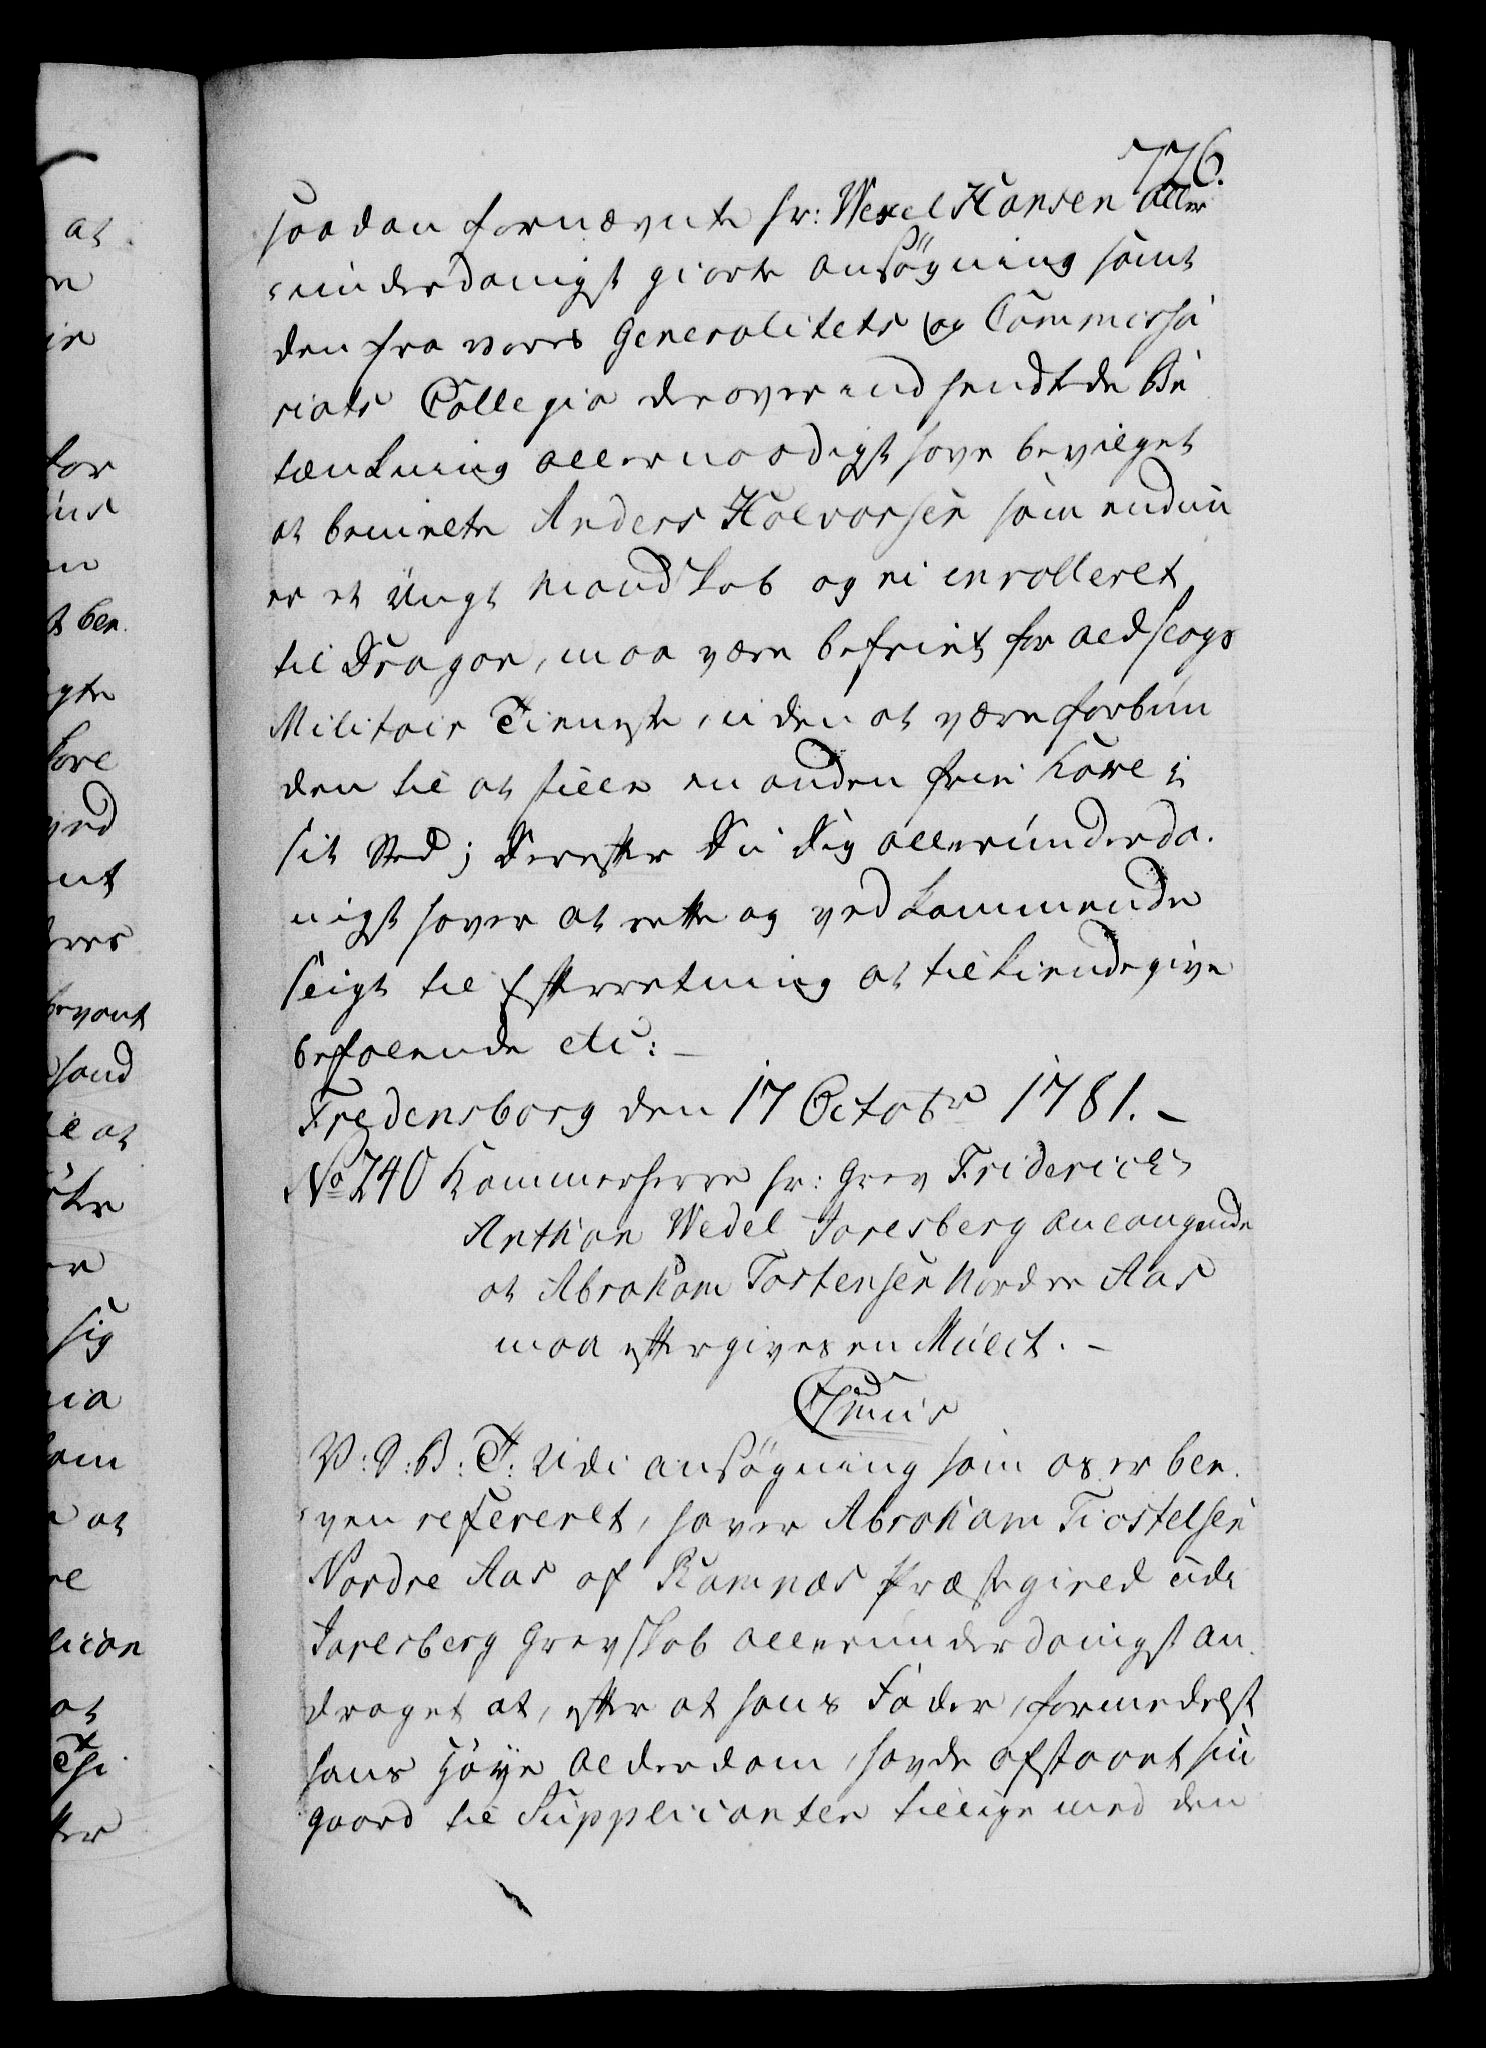 776.
saadan fornævnte Hr: Wexel Hansen aller
underdanigst giorte Ansøgning samt
den fra vores Generalitets og Commissa
riats Collegio derover indsendte Be
tænkning allernaadigst have bevilget
at bemelte Anders Halvorsen som endnu
er et Ungt Mandskab og ei enrolleret
til Dragon, maa være befriet for al slags
Militair Tieneste, uden at være forbun
den til at stille en anden frie Karl i
sit Sted; Derefter Du dig allerunderda.
nigst haver at rette og vedkommende
sligt til Efterretning at tilkiendegive
befalende etc: –
Fredensborg den 17 Octobr 1781. –
No 240 Kammerherre Hr: Grev Friderich
Anthon Wedel Jarlsberg anlangende
at Abraham Tostensen Nordre Aas
maa eftergives en Mulct. –
V: S: B: T: Udi ansøgning som os er ble.
ven refereret, haver Abraham Tiostelsen
Nordre Aas af Ramnæs Præstegield udi
Jarlsberg Grevskab allerunderdanigst an.
draget at, efter at hans Fader, formedelst
hans høye Alderdom, havde afstaaet sin
Gaard til Supplicanten tillige med den
at
for
ved
sig
som
at